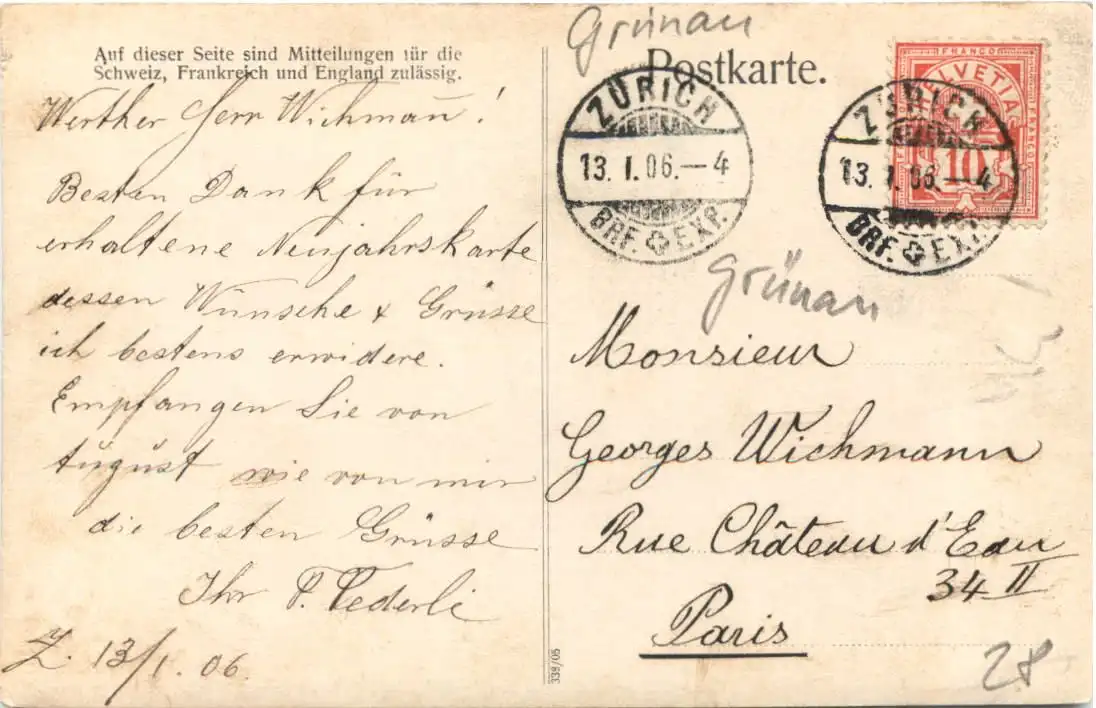 Grünau
Auf dieser Seite sind Mitteilungen für die
Schweiz, Frankreich und England zulässig.
Postkarte.
Werther Herr Wichmann!
Besten Dank für
erhaltene Neujahrskarte
dessen Wünsche & Grüsse
ich bestens erwidere.
Empfangen Sie von
August wie von mir
die besten Grüsse
Ihr
Z. 13/1 06.
338/05
ZÜRICH
13. I. 06.–4
BRF. EXP.
ZÜRICH
13. I. 06.–4
BRF. EXP.
FRANCO
HELVETIA
10
Grünau
Monsieur
Georges Wichmann
Rue Château d'Eau
34 II
Paris
28